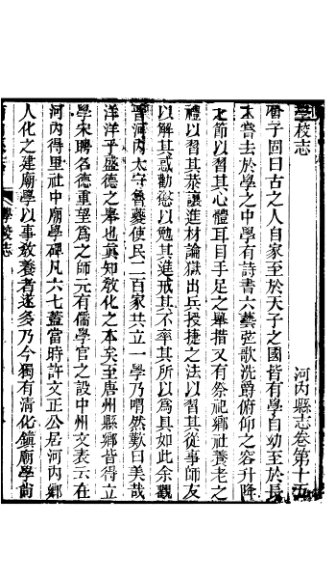 學校志 河內縣志卷第十五
曾子固曰古之人自家至於天子之國皆有學自幼至於長
未嘗去於學之中學有詩書六藝弦歌洗爵俯仰之容升降
之節以習其心體耳目手足之舉措又有祭祀鄉社養老之
禮以習其恭讓進材論獄出兵授捷之法以習其從事師友
以解其惑勸懲以勉其進戒其不率其所以爲具如此余觀
晉河內太守魯夔使民二百家共立一學乃喟然歎曰美哉
洋洋乎盛德之舉也真知敎化之本矣至唐州縣鄉皆得立
學宋聘名德重望爲之師元有儒學官之設中州文表云在
河內得里社中廟學碑凡六七蓋當時許文正公居河內鄉
人化之建廟學以事敎養者遂多乃今獨有清化鎮廟學尚
學校志